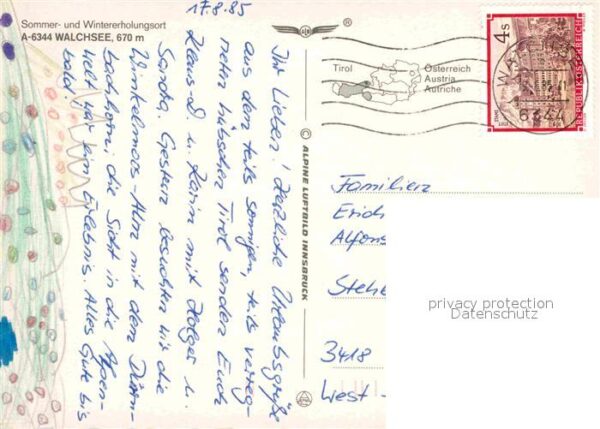 Sommer- und Wintererholungsort
A-6344 WALCHSEE, 670 m
17.8.85
Ihr Lieben! Herzliche Urlaubsgrüße
aus dem teils sonnigen, teils verreg-
neten hübschen Tirol senden Euch
Klaus D. u. Karin mit Holger u.
Sandra. Gestern besuchten wir die
Winkelmoos-Alm mit dem Dürrn-
bachhorn, die Sicht in die Alpen-
welt war ein Erlebnis. Alles Gute bis
bald!
©ALPINE LUFTBILD INNSBRUCK
®
Tirol
Österreich
Austria
Autriche
4s
REPUBLIK ÖSTERREICH
6344
Familien
Erich
Alfons
3418
West-
privacy protection
Datenschutz